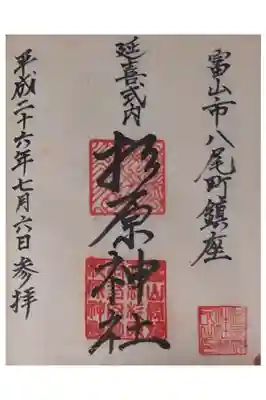 富山市八尾町鎮座
延喜式内
杉原神社
平成二十六年七月六日参拝